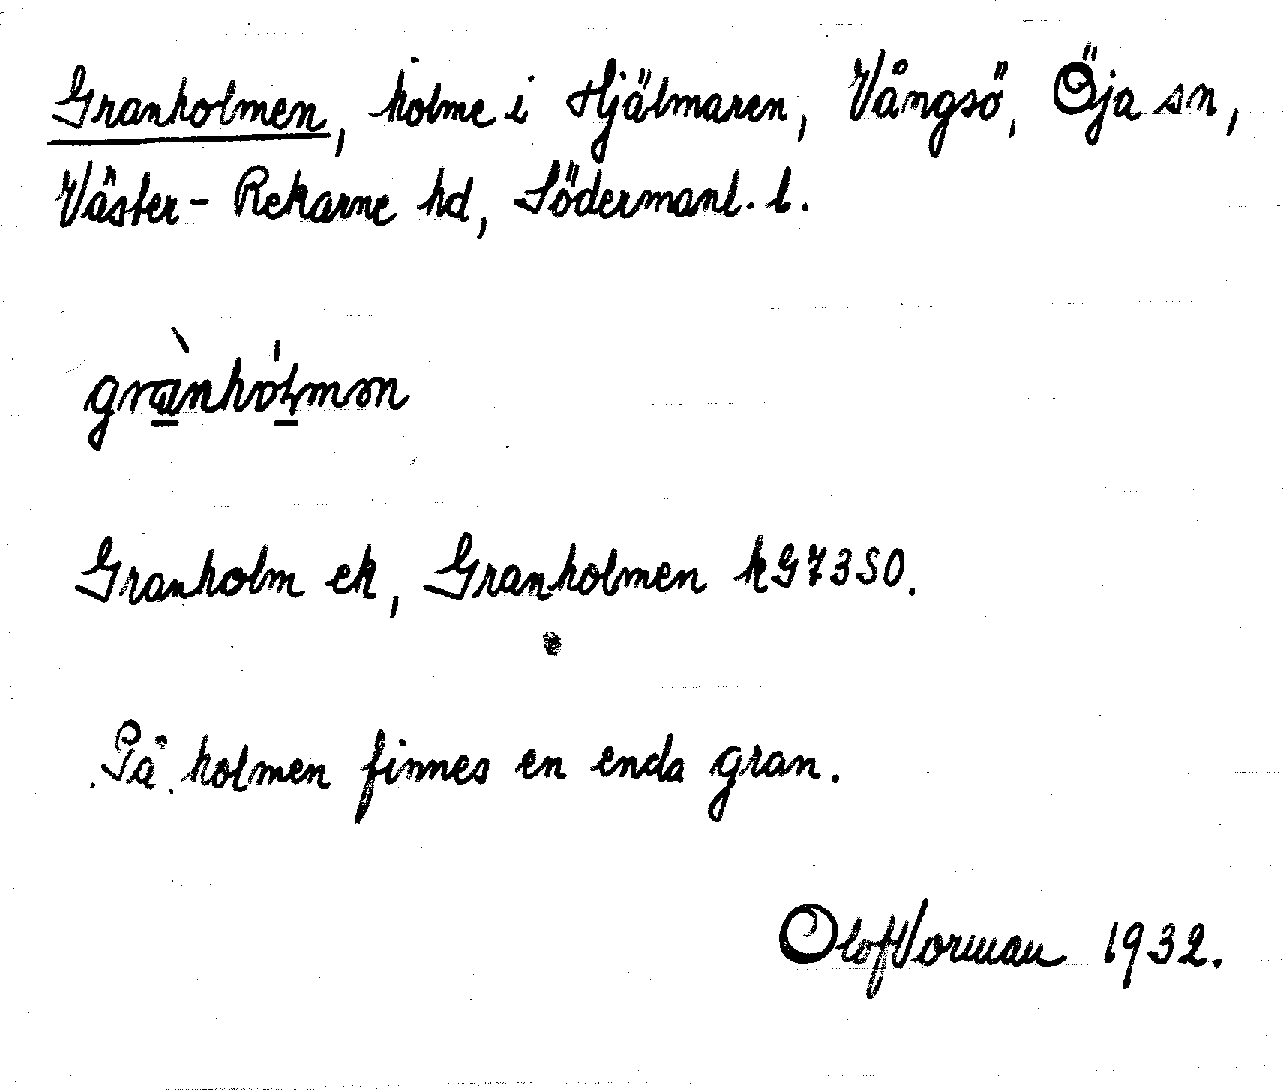 Granholmen, holme i Hjälmaren, Vångsö, Öja sn,
Väster-Rekarne hd, Södermanl. l.
grànhólmən
Granholm ek, Granholmen kG7350.
På holmen finnes en enda gran.
Olof Norman 1932.